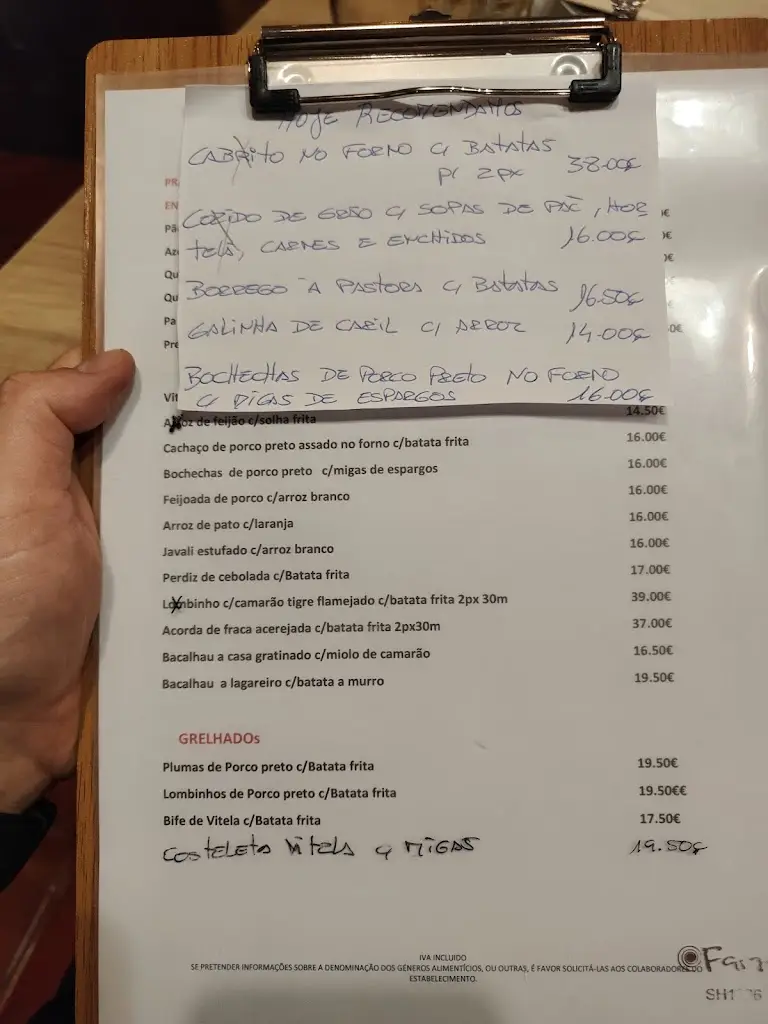 HOJE RECOMENDAMOS
CABRITO NO FORNO C/ BATATAS
P/ 2PX 38.00€
COZIDO DE GRÃO C/ SOPAS DE PÃE, HOR
TELÃ, CARNES E ENCHIDOS 16.00€
BORREGO A PASTORA C/ BATATAS 16.50€
GALINHA DE CARIL C/ ARROZ 14.00€
BOCHECHAS DE PORCO PRETO NO FORNO
C/ MIGAS DE ESPARGOS 16.00€
PR
EN
Pã
Az
Qu
Qu
Pa
Pre
Vit
Arroz de feijão c/solha frita 14.50€
Cachaço de porco preto assado no forno c/batata frita 16.00€
Bochechas de porco preto c/migas de espargos 16.00€
Feijoada de porco c/arroz branco 16.00€
Arroz de pato c/laranja 16.00€
Javali estufado c/arroz branco 16.00€
Perdiz de cebolada c/Batata frita 17.00€
Lombinho c/camarão tigre flamejado c/batata frita 2px 30m 39.00€
Acorda de fraca acerejada c/batata frita 2px30m 37.00€
Bacalhau a casa gratinado c/miolo de camarão 16.50€
Bacalhau a lagareiro c/batata a murro 19.50€
GRELHADOs
Plumas de Porco preto c/Batata frita 19.50€
Lombinhos de Porco preto c/Batata frita 19.50€€
Bife de Vitela c/Batata frita 17.50€
Costeleta Vitela c/ MIGAS 19.50€
IVA INCLUIDO
SE PRETENDER INFORMAÇÕES SOBRE A DENOMINAÇÃO DOS GÉNEROS ALIMENTÍCIOS, OU OUTRAS, É FAVOR SOLICITÁ-LAS AOS COLABORADORES DO
ESTABELECIMENTO.